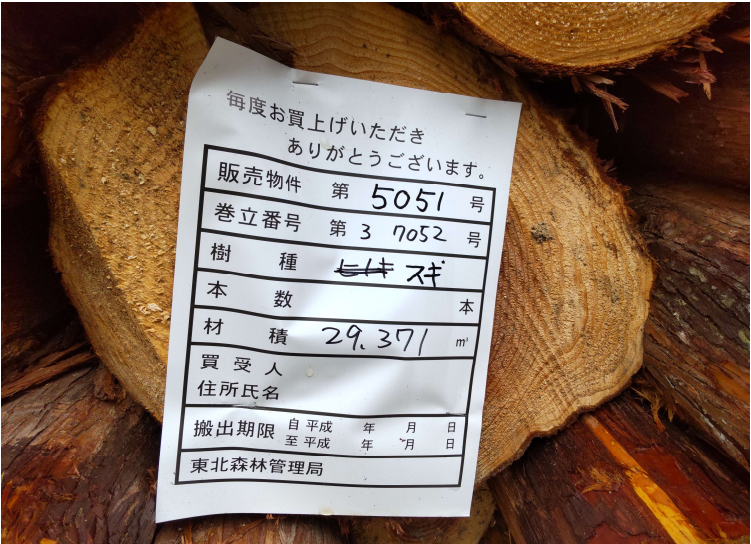 毎度お買上げいただき
ありがとうございます。
販売物件 第 5051 号
巻立番号 第 3 7052 号
樹種 ヒノキ スギ
本数 本
材積 29.371 ㎥
買受人
住所氏名
搬出期限 自 平成 年 月 日
至 平成 年 月 日
東北森林管理局